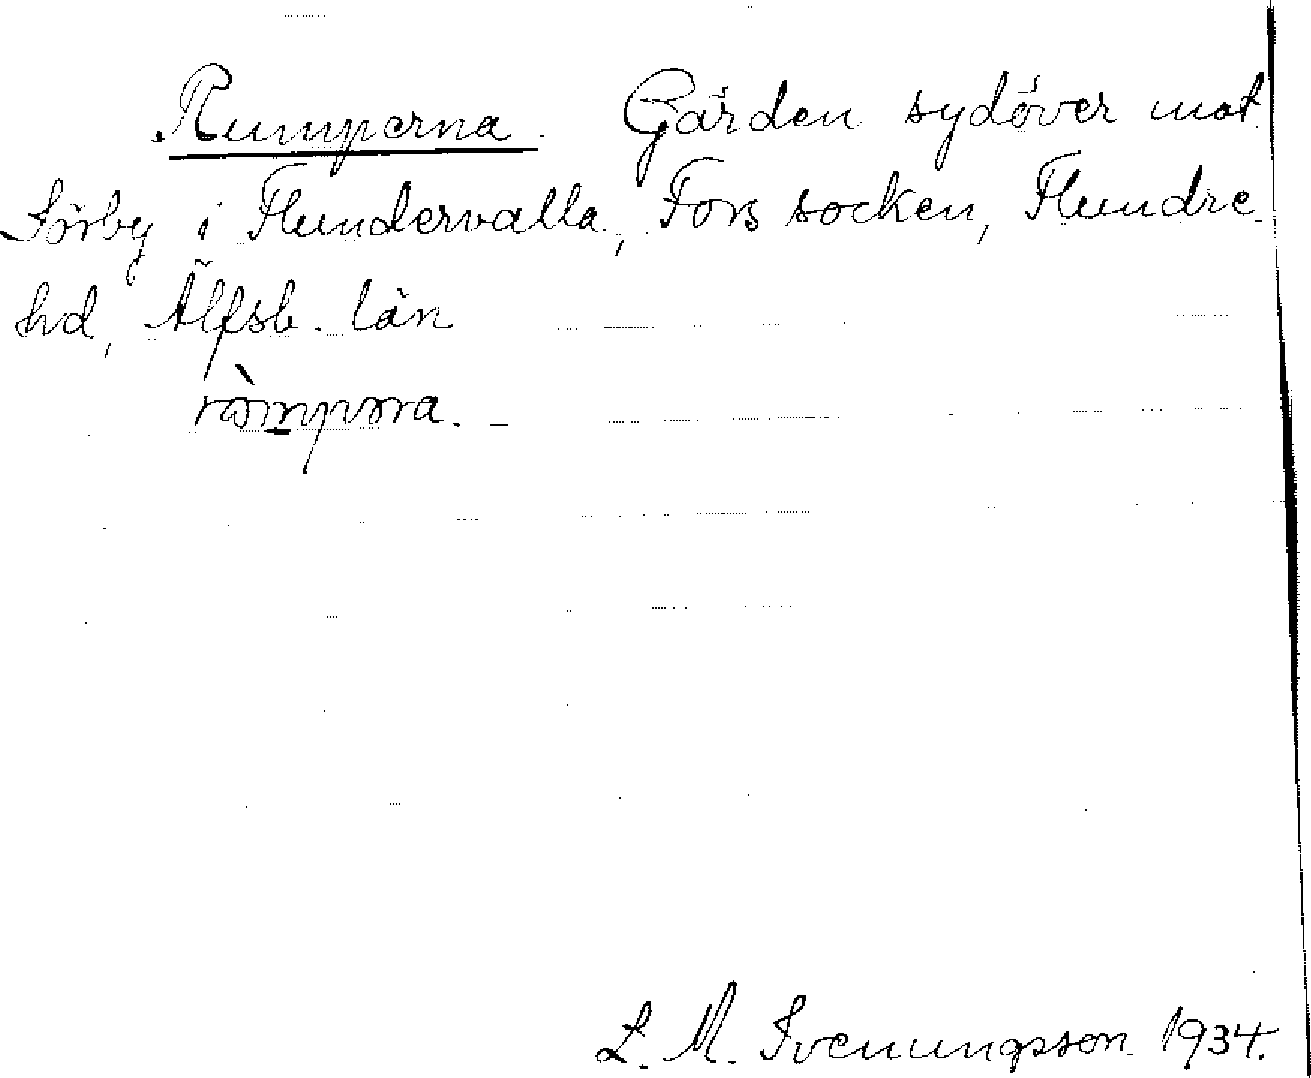 Rumperna. Gärden sydöver mot
Sörby i Flundervalla, Fors socken, Flundre
hd, Älfsb. län
ròmpora. -
L. M. Svenungsson 1934.